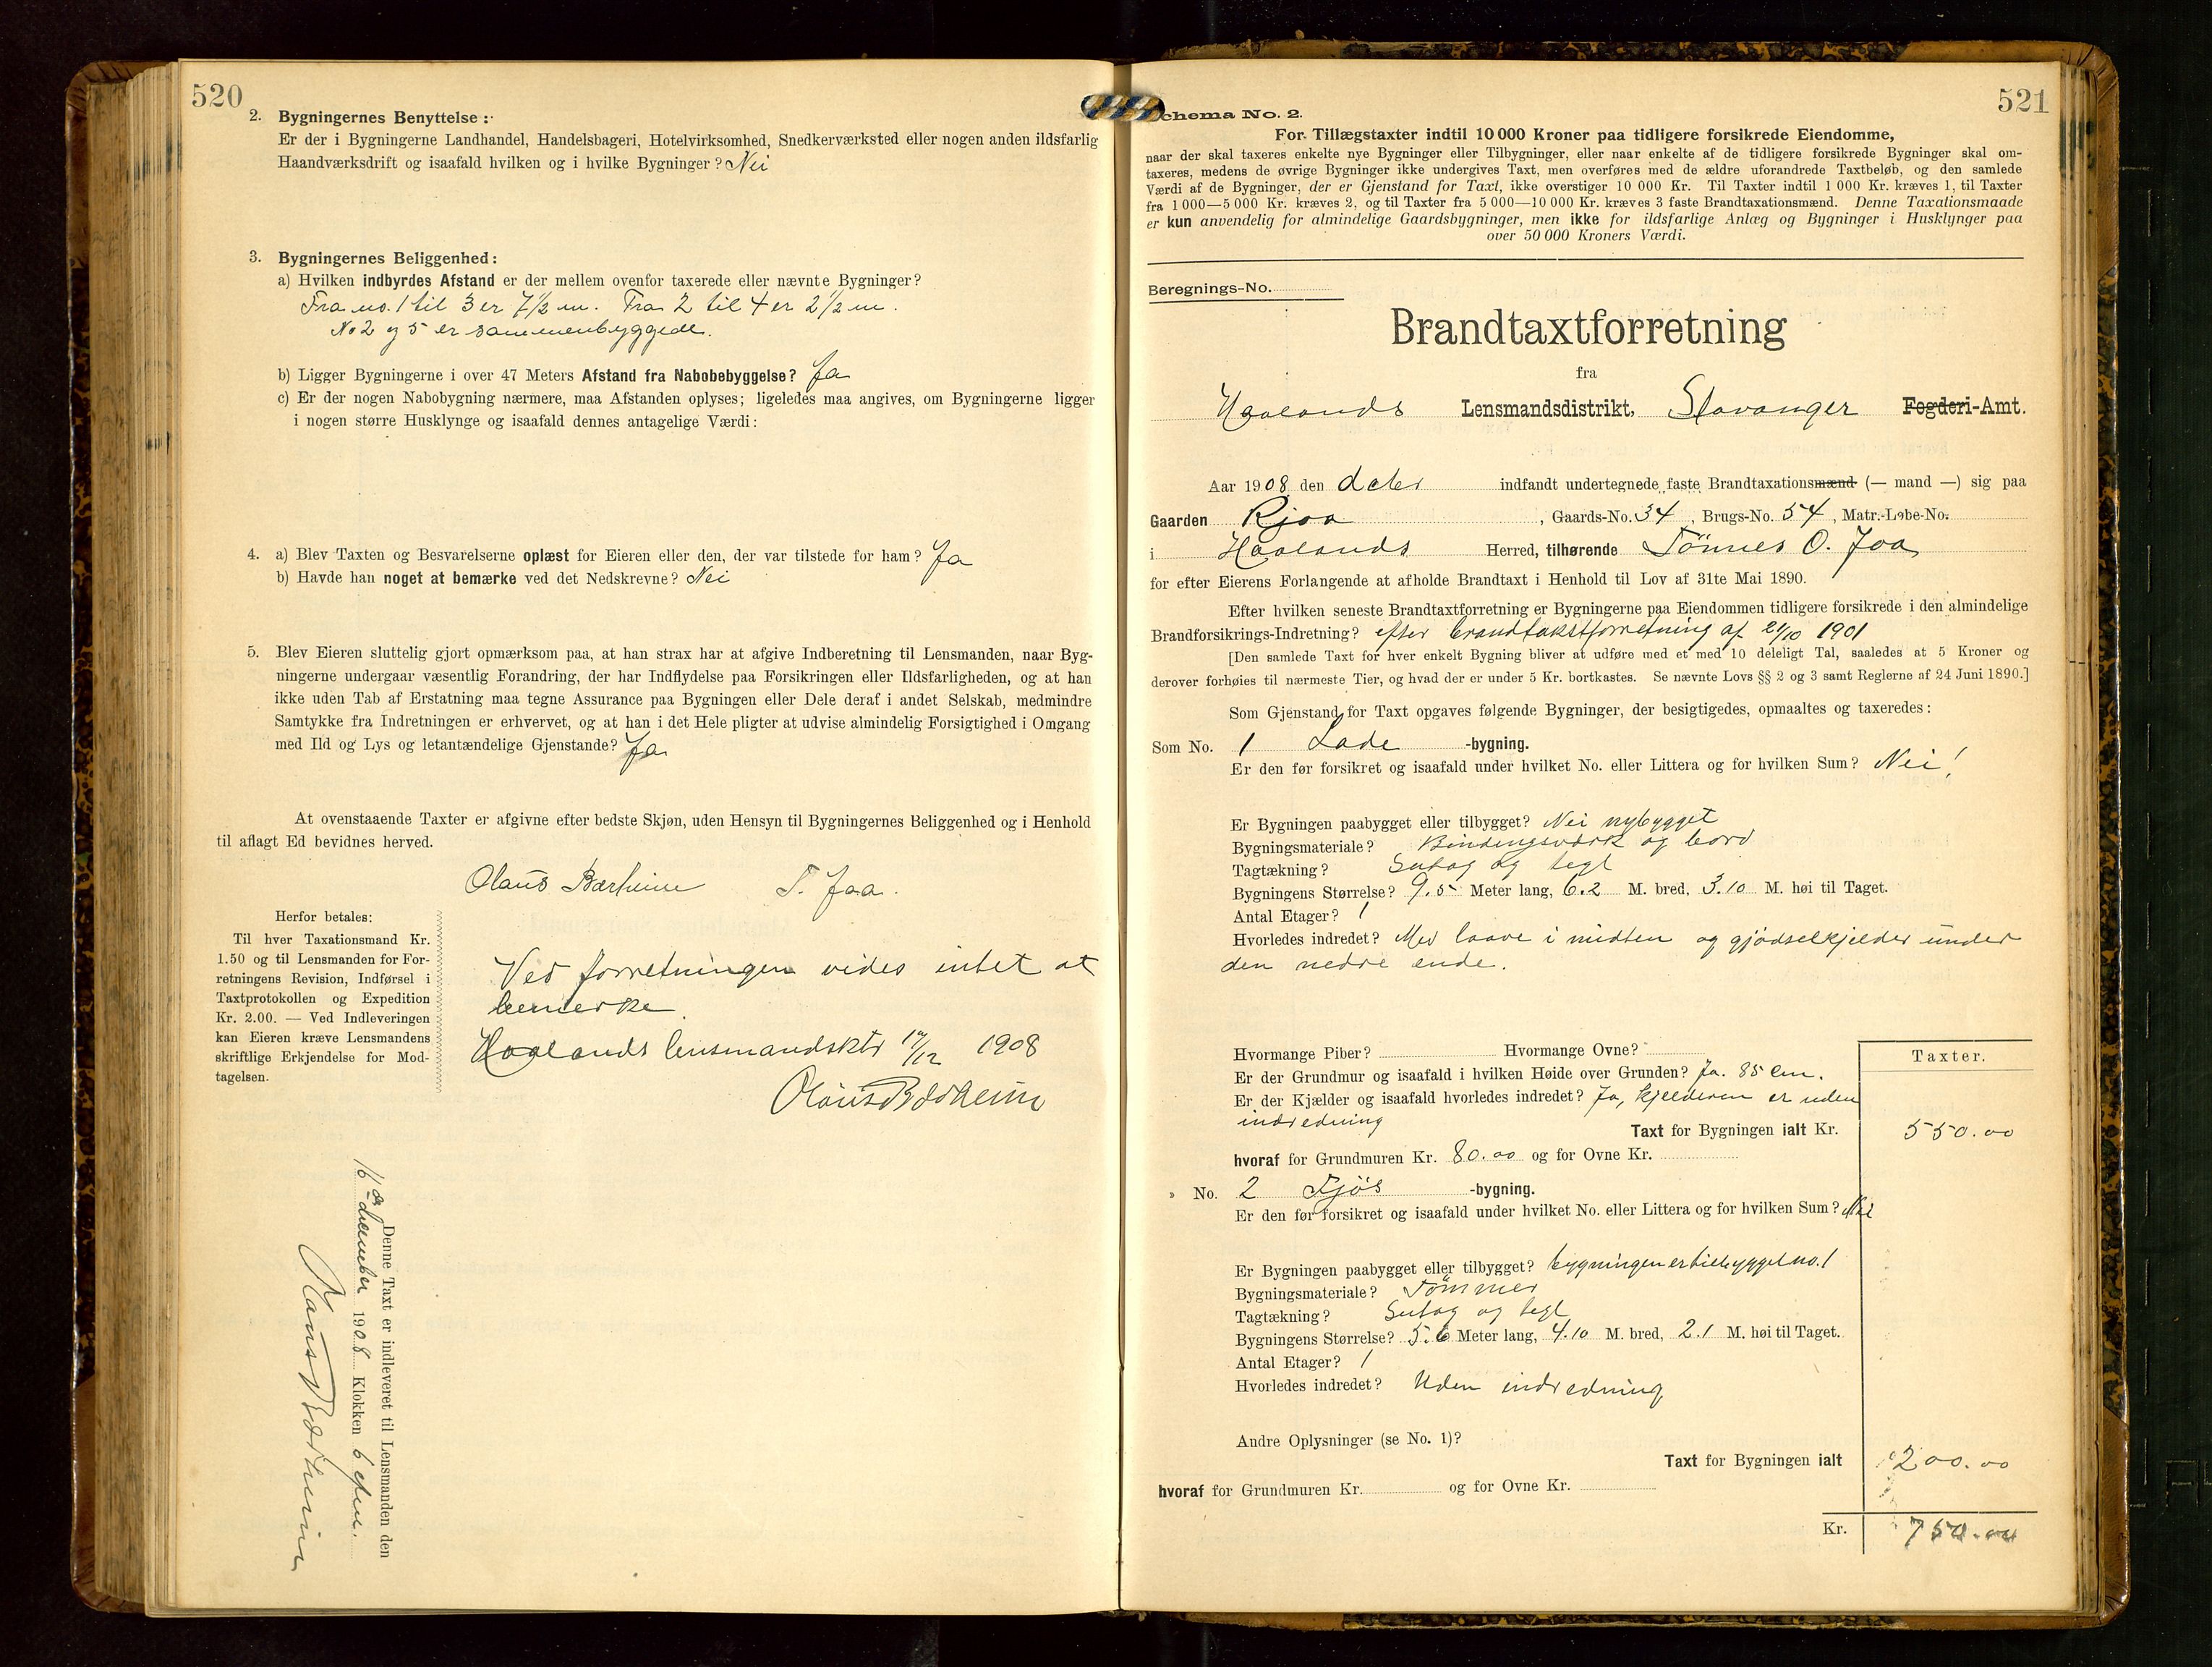 520
2. Bygningernes Benyttelse:
Er der i Bygningerne Landhandel, Handelsbageri, Hotelvirksomhed, Snedkerværksted eller nogen anden ildsfarlig
Haandværksdrift og isaafald hvilken og i hvilke Bygninger? Nei
3. Bygningernes Beliggenhed:
a) Hvilken indbyrdes Afstand er der mellem ovenfor taxerede eller nævnte Bygninger?
Fra no. 1 til 3 er 7½ m. Fra 2 til 4 er 2½ m.
No 2 og 5 er sammenbyggede.
b) Ligger Bygningerne i over 47 Meters Afstand fra Nabobebyggelse? Ja
c) Er der nogen Nabobygning nærmere, maa Afstanden oplyses; ligeledes maa angives, om Bygningerne ligger
i nogen større Husklynge og isaafald dennes antagelige Værdi:
4. a) Blev Taxten og Besvarelserne oplæst for Eieren eller den, der var tilstede for ham? Ja
b) Havde han noget at bemærke ved det Nedskrevne? Nei
5. Blev Eieren sluttelig gjort opmærksom paa, at han strax har at afgive Indberetning til Lensmanden, naar Byg-
ningerne undergaar væsentlig Forandring, der har Indflydelse paa Forsikringen eller Ildsfarligheden, og at han
ikke uden Tab af Erstatning maa tegne Assurance paa Bygningen eller Dele deraf i andet Selskab, medmindre
Samtykke fra Indretningen er erhvervet, og at han i det Hele pligter at udvise almindelig Forsigtighed i Omgang
med Ild og Lys og letantændelige Gjenstande? Ja
At ovenstaaende Taxter er afgivne efter bedste Skjøn, uden Hensyn til Bygningernes Beliggenhed og i Henhold
til aflagt Ed bevidnes herved.
Olaus Bærheim T. Jaa.
Herfor betales:
Til hver Taxationsmand Kr.
1.50 og til Lensmanden for For-
retningens Revision, Indførsel i
Taxtprotokollen og Expedition
Kr. 2.00. — Ved Indleveringen
kan Eieren kræve Lensmandens
skriftlige Erkjendelse for Mod-
tagelsen.
Ved forretningen vides intet at
bemerke.
Haalands lensmandsktr 17/12 1908
Olaus Bærheim
Denne Taxt er indleveret til Lensmanden den
16 de december 1908 Klokken 6 efterm.
Bærheim
521
Schema No. 2.
For Tillægstaxter indtil 10 000 Kroner paa tidligere forsikrede Eiendomme,
naar der skal taxeres enkelte nye Bygninger eller Tilbygninger, eller naar enkelte af de tidligere forsikrede Bygninger skal om-
taxeres, medens de øvrige Bygninger ikke undergives Taxt, men overføres med de ældre uforandrede Taxtbeløb, og den samlede
Værdi af de Bygninger, der er Gjenstand for Taxt, ikke overstiger 10 000 Kr. Til Taxter indtil 1 000 Kr. kræves 1, til Taxter
fra 1 000—5 000 Kr. kræves 2, og til Taxter fra 5 000—10 000 Kr. kræves 3 faste Brandtaxationsmænd. Denne Taxationsmaade
er kun anvendelig for almindelige Gaardsbygninger, men ikke for ildsfarlige Anlæg og Bygninger i Husklynger paa
over 50 000 Kroners Værdi.
Beregnings-No.
Brandtaxtforretning
fra
Haalands Lensmandsdistrikt, Stavanger Fogderi-Amt.
Aar 1908 den indfandt undertegnede faste Brandtaxationsmænd (— mand —) sig paa
Gaarden Rjaa, Gaards-No. 34, Brugs-No. 54, Matr.-Løbe-No.
i Haalands Herred, tilhørende Tønnes O. Jaa
for efter Eierens Forlangende at afholde Brandtaxt i Henhold til Lov af 31te Mai 1890.
Efter hvilken seneste Brandtaxtforretning er Bygningerne paa Eiendommen tidligere forsikrede i den almindelige
Brandforsikrings-Indretning? efter brandtakstforretning af 21/10 1901
[Den samlede Taxt for hver enkelt Bygning bliver at udføre med et med 10 deleligt Tal, saaledes at 5 Kroner og
derover forhøies til nærmeste Tier, og hvad der er under 5 Kr. bortkastes. Se nævnte Lovs §§ 2 og 3 samt Reglerne af 24 Juni 1890.]
Som Gjenstand for Taxt opgaves følgende Bygninger, der besigtigedes, opmaaltes og taxeredes:
Som No. 1 Lade -bygning.
Er den før forsikret og isaafald under hvilket No. eller Littera og for hvilken Sum? Nei!
Er Bygningen paabygget eller tilbygget? Nei nybygget
Bygningsmateriale? Bindingsværk og bord
Tagtækning? Sutag og tegl
Bygningens Størrelse? 9.5 Meter lang, 6.2 M. bred, 3.10 M. høi til Taget.
Antal Etager? 1
Hvorledes indredet? Med laave i midten og gjødselkjelder under
den nedre ende.
Hvormange Piber? Hvormange Ovne?
Taxter.
Er der Grundmur og isaafald i hvilken Høide over Grunden? Ja. 85 cm.
Er der Kjælder og isaafald hvorledes indredet? Ja, kjelderen er uden
indredning
Taxt for Bygningen ialt Kr. 550.00
hvoraf for Grundmuren Kr. 80.00 og for Ovne Kr.
» No. 2 Fjøs -bygning.
Er den før forsikret og isaafald under hvilket No. eller Littera og for hvilken Sum? Nei
Er Bygningen paabygget eller tilbygget? bygningen er tilbygget no. 1
Bygningsmateriale? Tømmer
Tagtækning? Sutag og tegl
Bygningens Størrelse? 5.6 Meter lang, 4.10 M. bred, 2.1 M. høi til Taget.
Antal Etager? 1
Hvorledes indredet? Uden indredning
Andre Oplysninger (se No. 1)?
Taxt for Bygningen ialt 200.00
hvoraf for Grundmuren Kr. og for Ovne Kr.
Kr. 750.00